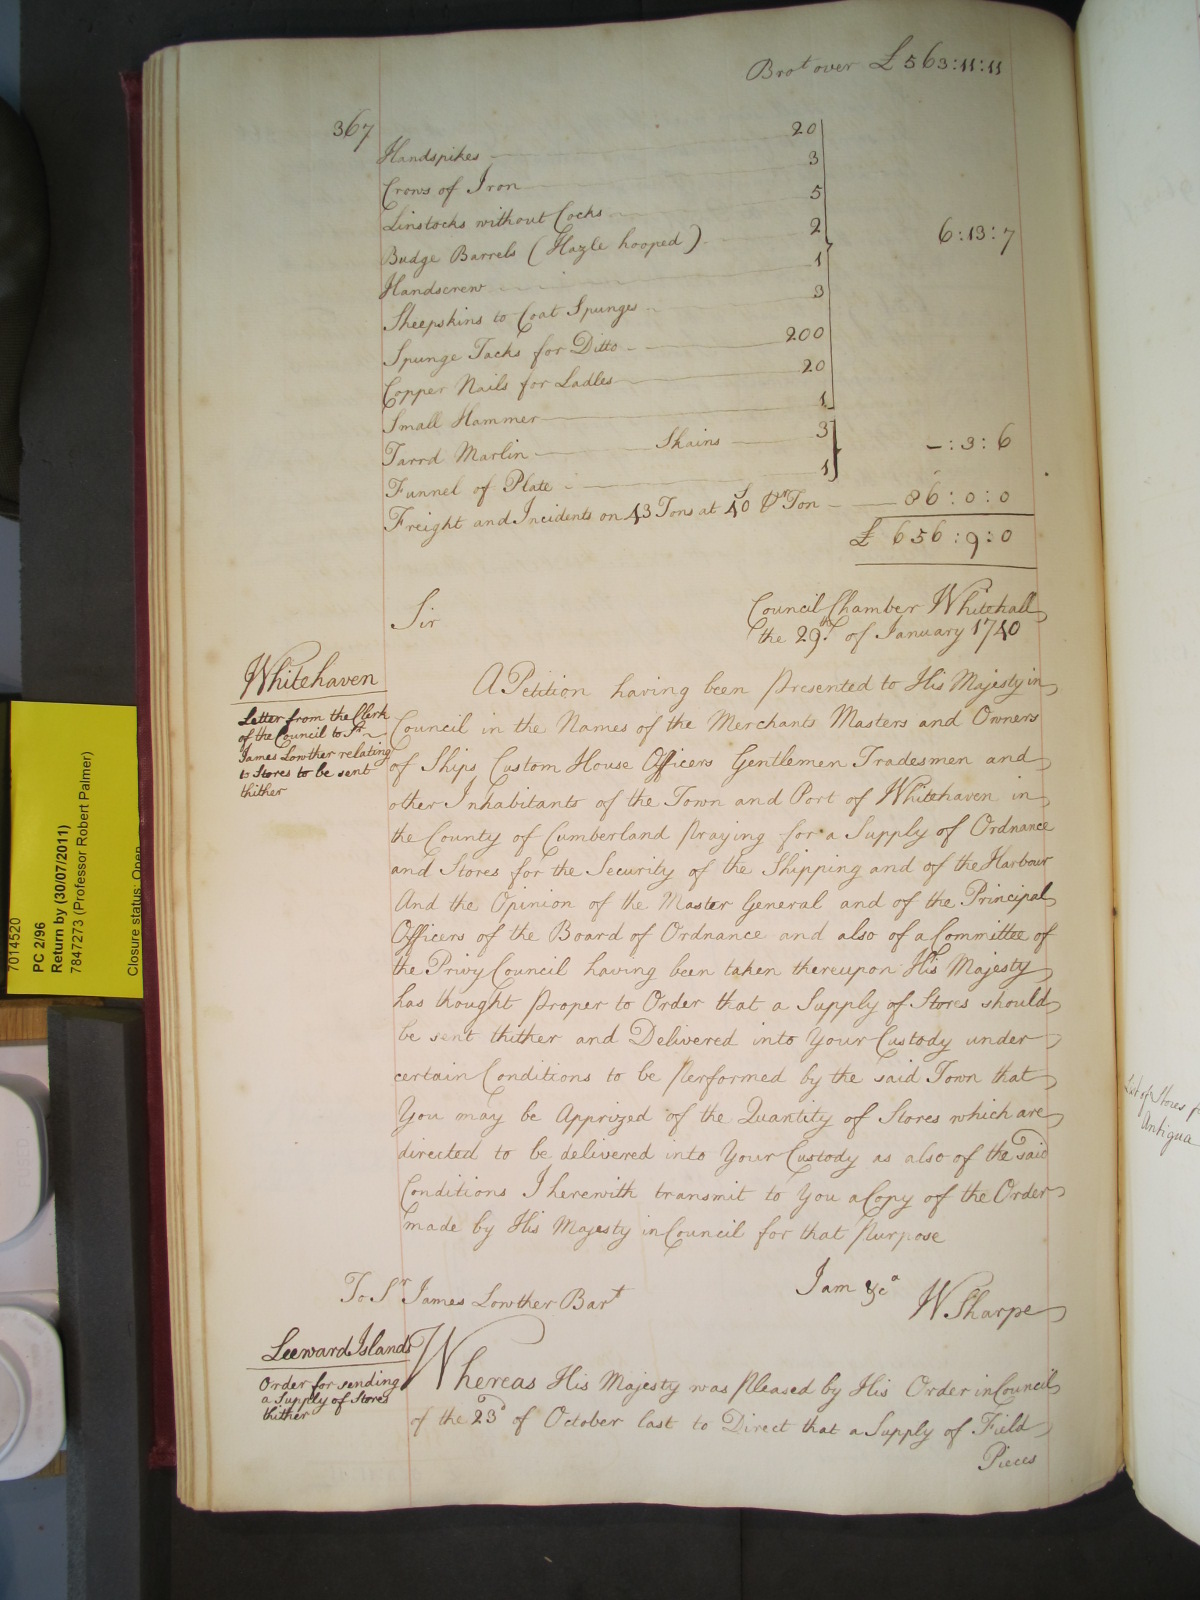 Brot over £563:11:11
367
Handspikes 20
Crows of Iron 3
Linstocks without Cocks 5
Budge Barrels (Hazle hooped) 2 6:13:7
Handscrew 1
Sheepskins to Coat Spunges 3
Spunge Tacks for Ditto 200
Copper Nails for Ladles 20
Small Hammer 1
Tarrd Marlin Skains 3 -:3:6
Funnel of Plate 1
Freight and Incidents on 43 Tons at 40s pr Ton 86:0:0
£ 656:9:0
Sir
Council Chamber Whitehall
the 29th of January 1740
Whitehaven
Letter from the Clerk
of the Council to Sr
James Lowther relating
to Stores to be sent
thither
A Petition having been presented to His Majesty in
Council in the Names of the Merchants Masters and Owners
of Ships Custom House Officers Gentlemen Tradesmen and
other Inhabitants of the Town and Port of Whitehaven in
the County of Cumberland praying for a Supply of Ordnance
and Stores for the Security of the Shipping and of the Harbour
And the Opinion of the Master General and of the Principal
Officers of the Board of Ordnance and also of a Committee of
the Privy Council having been taken thereupon His Majesty
has thought proper to Order that a Supply of Stores should
be sent thither and Delivered into Your Custody under
certain Conditions to be performed by the said Town that
You may be Apprized of the Quantity of Stores which are
directed to be delivered into Your Custody as also of the said
Conditions I herewith transmit to You a Copy of the Order
made by His Majesty in Council for that purpose
I am &ca
W Sharpe
To Sr James Lowther Bart
Leeward Islands
Order for sending
a Supply of Stores
thither
Whereas His Majesty was pleased by His Order in Council
of the 23d of October last to Direct that a Supply of Field
Pieces
7014520
PC 2/96
Return by (30/07/2011)
7847273 (Professor Robert Palmer)
Closure status: Open
List of Stores
Antigua